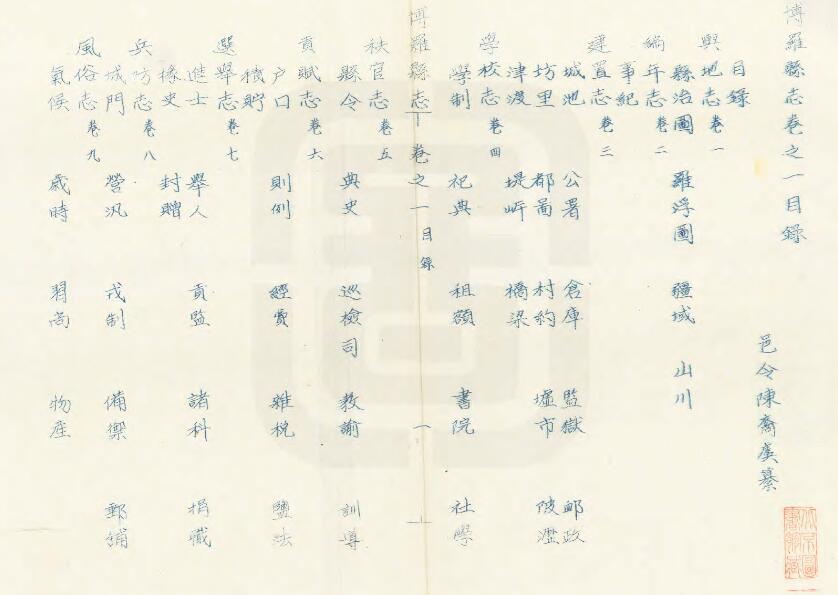 博羅縣志卷之一目錄
邑令陳裔虞纂
目錄
輿地志卷一
縣治圖 羅浮圖 疆域 山川
編年志卷二
事紀
建置志卷三
城池 公署 倉庫 監獄 郵政
坊里 都啚 村約 墟市 陂瀝
津渡 堤岸 橋梁
學校志卷四
學制 祀典 租額 書院 社學
博羅縣志 卷之一 目錄 一
秩官志卷五
縣令 典史 巡檢司 教諭 訓導
貢賦志卷六
户口 則例 經費 雜稅 鹽法
積貯
選舉志卷七
進士 舉人 貢監 諸科 捐職
椽史 封贈
兵防志卷八
城門 營汛 戎制 備禦 郵舖
風俗志卷九
氣候 歲時 習尚 物産